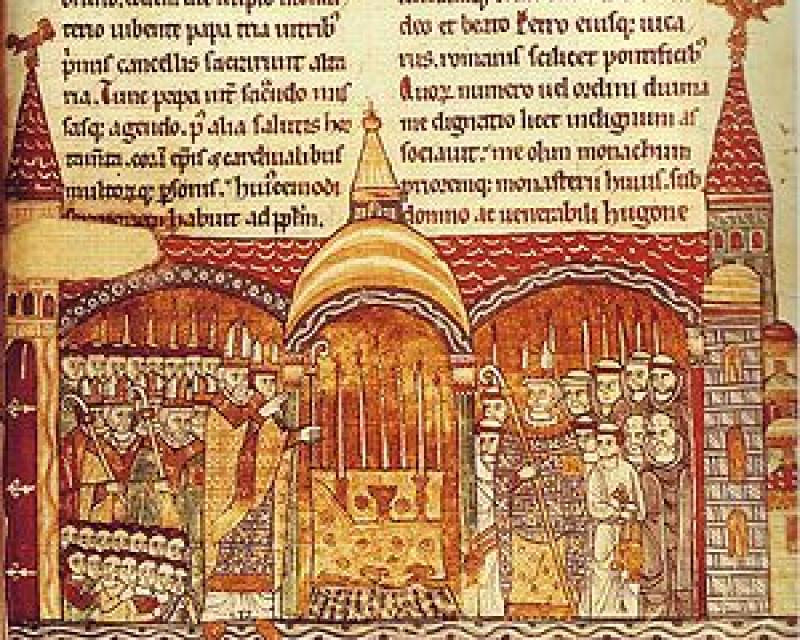 terio iubente papa tria in trib'
pmis cancellis sacrauerunt alta
ria. Tunc papa int sacrando mis
sasq; agendo. p' alia salutis ho
coram epis et cardinalibus
multorq; psonis. huiscemodi
habuit ad pplm.
deo et beato Petro eiusq; uica
riis. romanis scilicet pontificib'
Quoꝝ numero uel ordini diuina
me dignatio licet indignum as
sociauit. me olim monachum
prioremq; monasterii huius. sub
domno ac uenerabili hugone